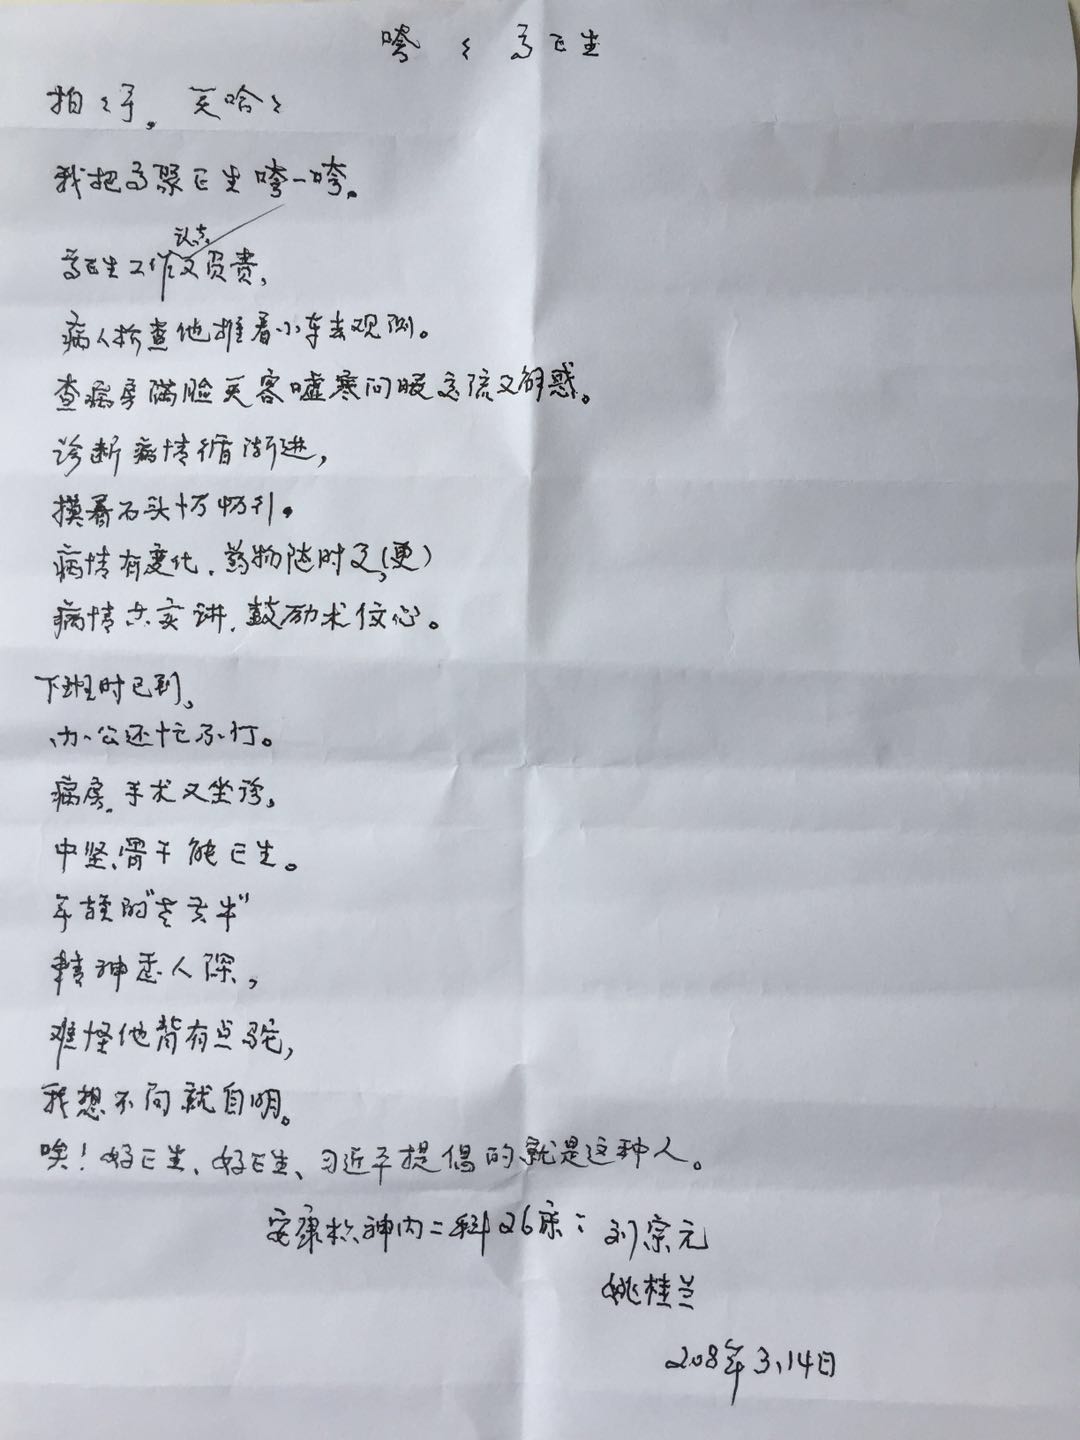 夸〻高医生
拍〻手，笑哈〻
我把高聚医生夸一夸。
高医生工作认真又负责，
病人检查他推着小车去观测。
查病房满脸笑容嘘寒问暖交流又解惑。
诊断病情循渐进，
摸着石头
病情有变化，药物随时更（更）
病情实讲，鼓励术信心。
下班时已到，
办公还忙不停。
病房、手术又坐诊，
中坚、骨干能医生。
年轻的"老黄牛"
精神惠人深，
难怪他背有点驼，
我想不问就自明。
唉！好医生、好医生、习近平提倡的就是这种人。
安康 神内二科26床：刘宗元
姚桂兰
208年3、14日